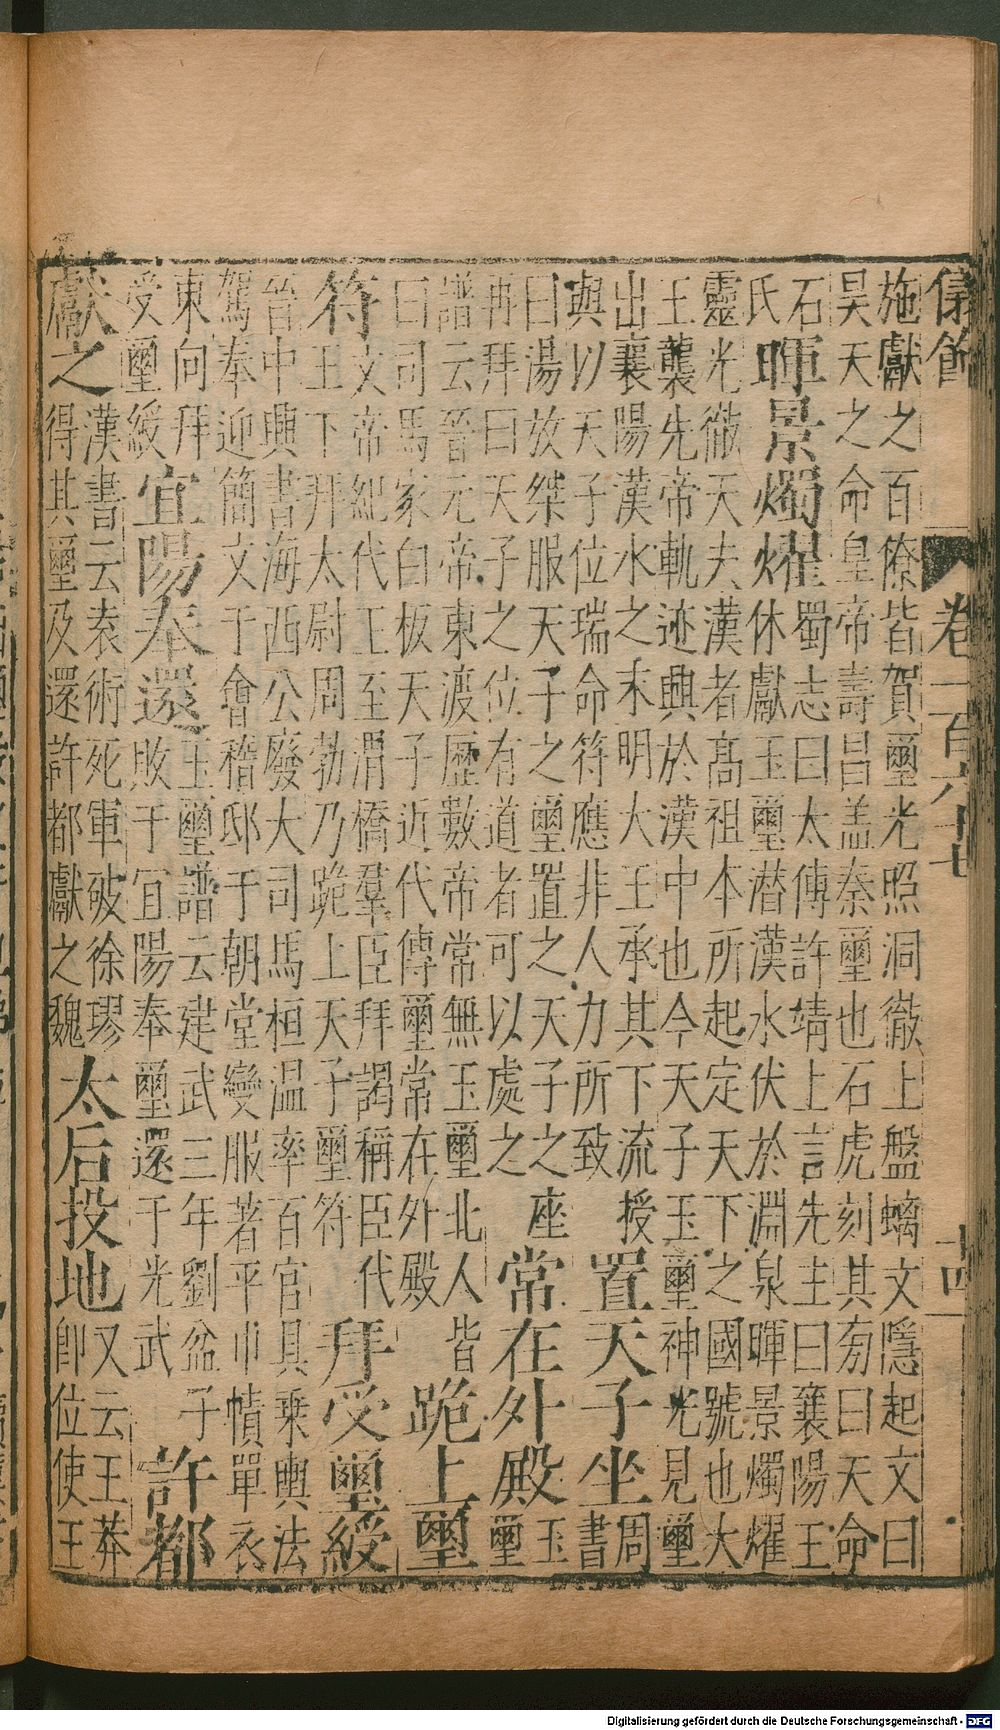 儀飾 卷一百六十七 十四
施獻之百僚皆賀璽光照洞徹上盤螭文隱起文曰
昊天之命皇帝壽昌盖秦璽也石虎刻其旁曰天命
石氏
暉景燭燿
蜀志曰太傅許靖上言先主曰襄陽王
休獻玉璽潜漢水伏於淵泉暉景燭燿
靈光徹天夫漢者高祖本所起定天下之國號也大
王襲先帝軌迹興於漢中也今天子玉璽神光見璽
出襄陽漢水之末明大王承其下流授
與以天子位瑞命符應非人力所致
置天子坐
周書
曰湯放桀服天子之璽置之天子之座
再拜曰天子之位有道者可以處之
常在外殿
玉璽
譜云晉元帝東渡歷數帝常無玉璽北人皆
曰司馬家白板天子近代傳璽常在外殿
跪上璽
符
文帝紀代王至渭橋羣臣拜謁稱臣代
王下拜太尉周勃乃跪上天子璽符
拜受璽綬
晉中興書海西公廢大司馬桓温率百官具乘輿法
駕奉迎簡文于會稽邸于朝堂變服著平巾幘單衣
東向拜
受璽綬
宜陽奉還
玉璽譜云建武三年劉盆子
敗于宜陽奉璽還于光武
許都
獻之
漢書云袁術死軍破徐璆
得其璽及還許都獻之魏
太后投地
又云王莽
即位使王
Digitalisierung gefördert durch die Deutsche Forschungsgemeinschaft - DFG